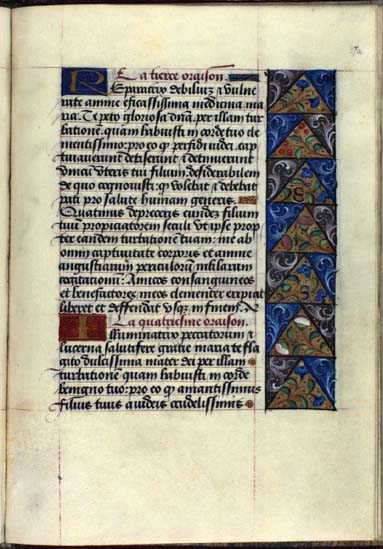 La tierce oraison.
Reparatrix debilium & vulne
rate anime efficassissima medicina ma
ria. Te peto gloriosa dnam per illam tur
bationem quam habuisti in corde tuo cle
mentissimo: pro eo q̃ perfidi iudei cap
tuauerunt detixerunt & detinuerunt
vnicum vteris tui filium desiderabilem
de quo cognouisti: q̃ volebat & debebat
pati pro salute humani generis.
Quatinus depreceris eundem filium
tuum propiciatorem seculi vt ipse prop
ter eandem turbationem tuam: me ab
omni captiuitate corporis et anime
angustiarum periculorum
cogitacionum: Amicos consanguineos
et benefactores meos clementer eripiat
liberet et deffendat vsq̃ in finem.
La quatriesme oraison.
Illuminatrix peccatorum &
lucerna salutifere gratie maria te fla
gito dulcissima mater dei per illam
turbationem quam habuisti in corde
benigno tuo: pro eo q̃ amantissimus
filius tuus a iudeis crudelissimis